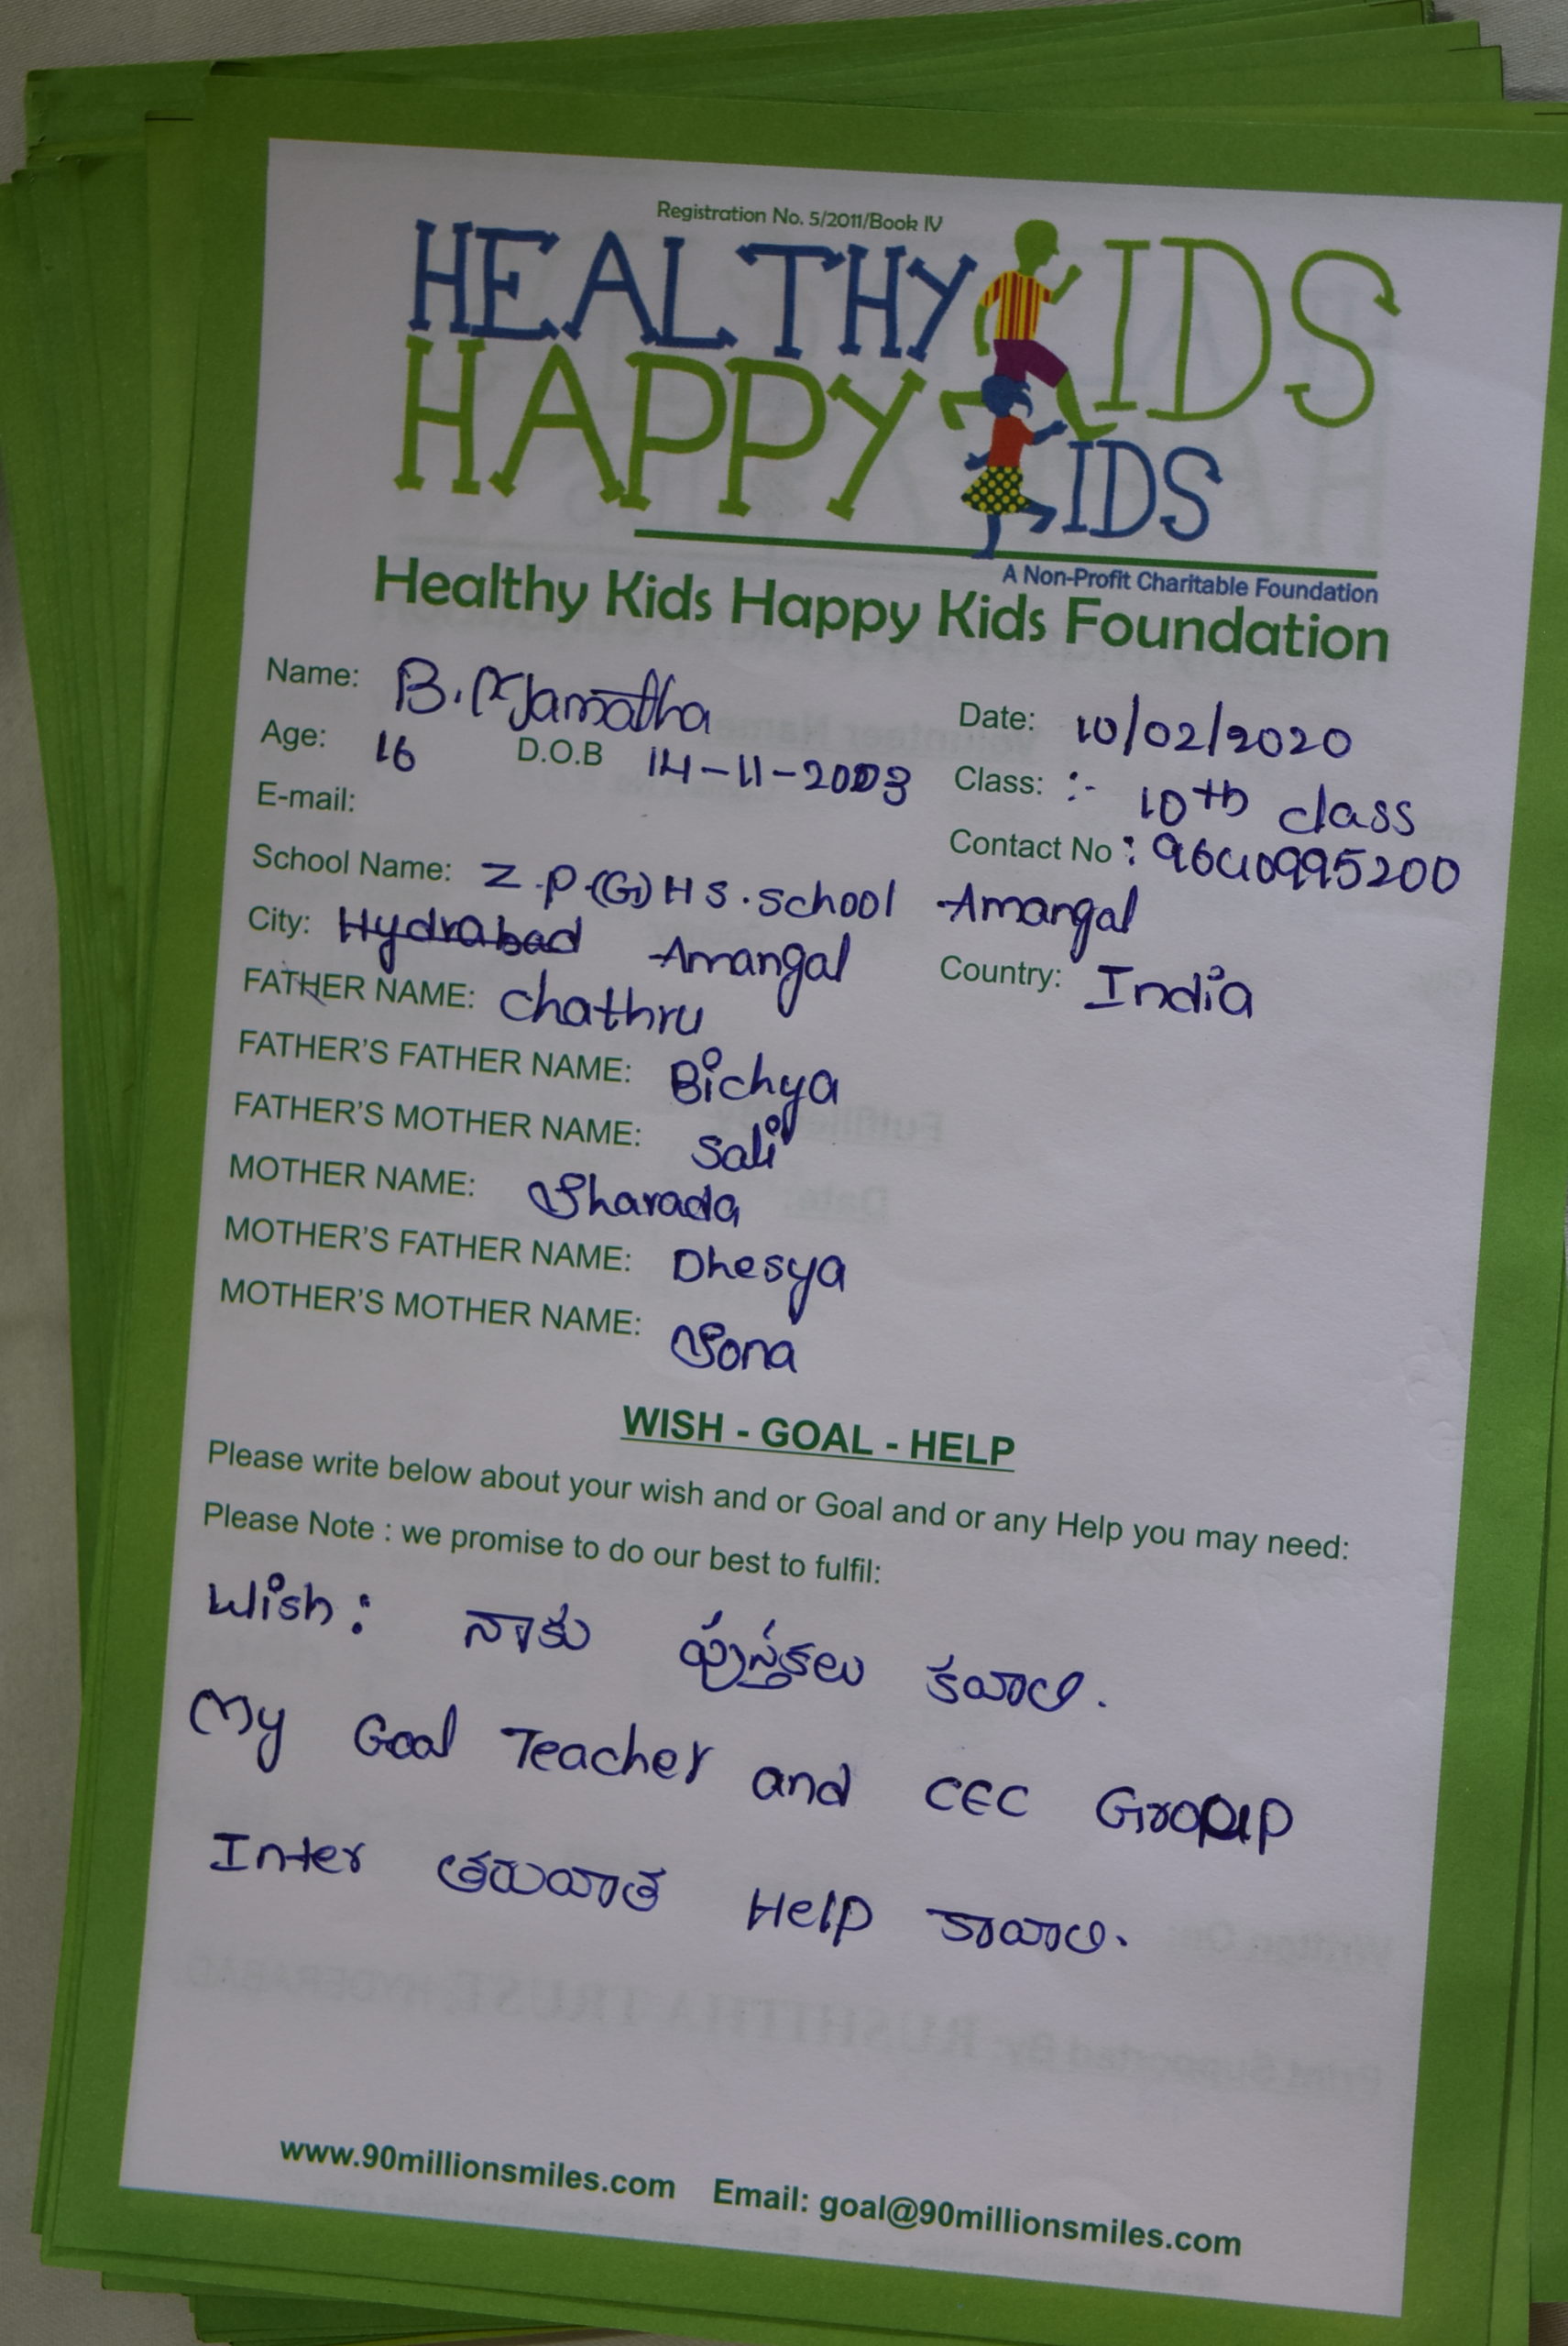 Registration No. 5/2011/Book IV
HEALTHY KIDS
HAPPY KIDS
A Non-Profit Charitable Foundation
Healthy Kids Happy Kids Foundation
Name: B. Mamatha Date: 10/02/2020
Age: 16 D.O.B 14-11-2003 Class: :- 10th class
E-mail: Contact No : 9640995200
School Name: Z.P.(G) H S. School Amangal
City: Hydrabad Amangal Country: India
FATHER NAME: Chathru
FATHER'S FATHER NAME: Bichya
FATHER'S MOTHER NAME: Sali
MOTHER NAME: Sharada
MOTHER'S FATHER NAME: Dhesya
MOTHER'S MOTHER NAME: Sona
WISH - GOAL - HELP
Please write below about your wish and or Goal and or any Help you may need:
Please Note : we promise to do our best to fulfil:
Wish: నాకు పుస్తకలు కవాలి.
My Goal Teacher and CEC Group
Inter తరువాత Help కావాలి.
www.90millionsmiles.com Email: goal@90millionsmiles.com